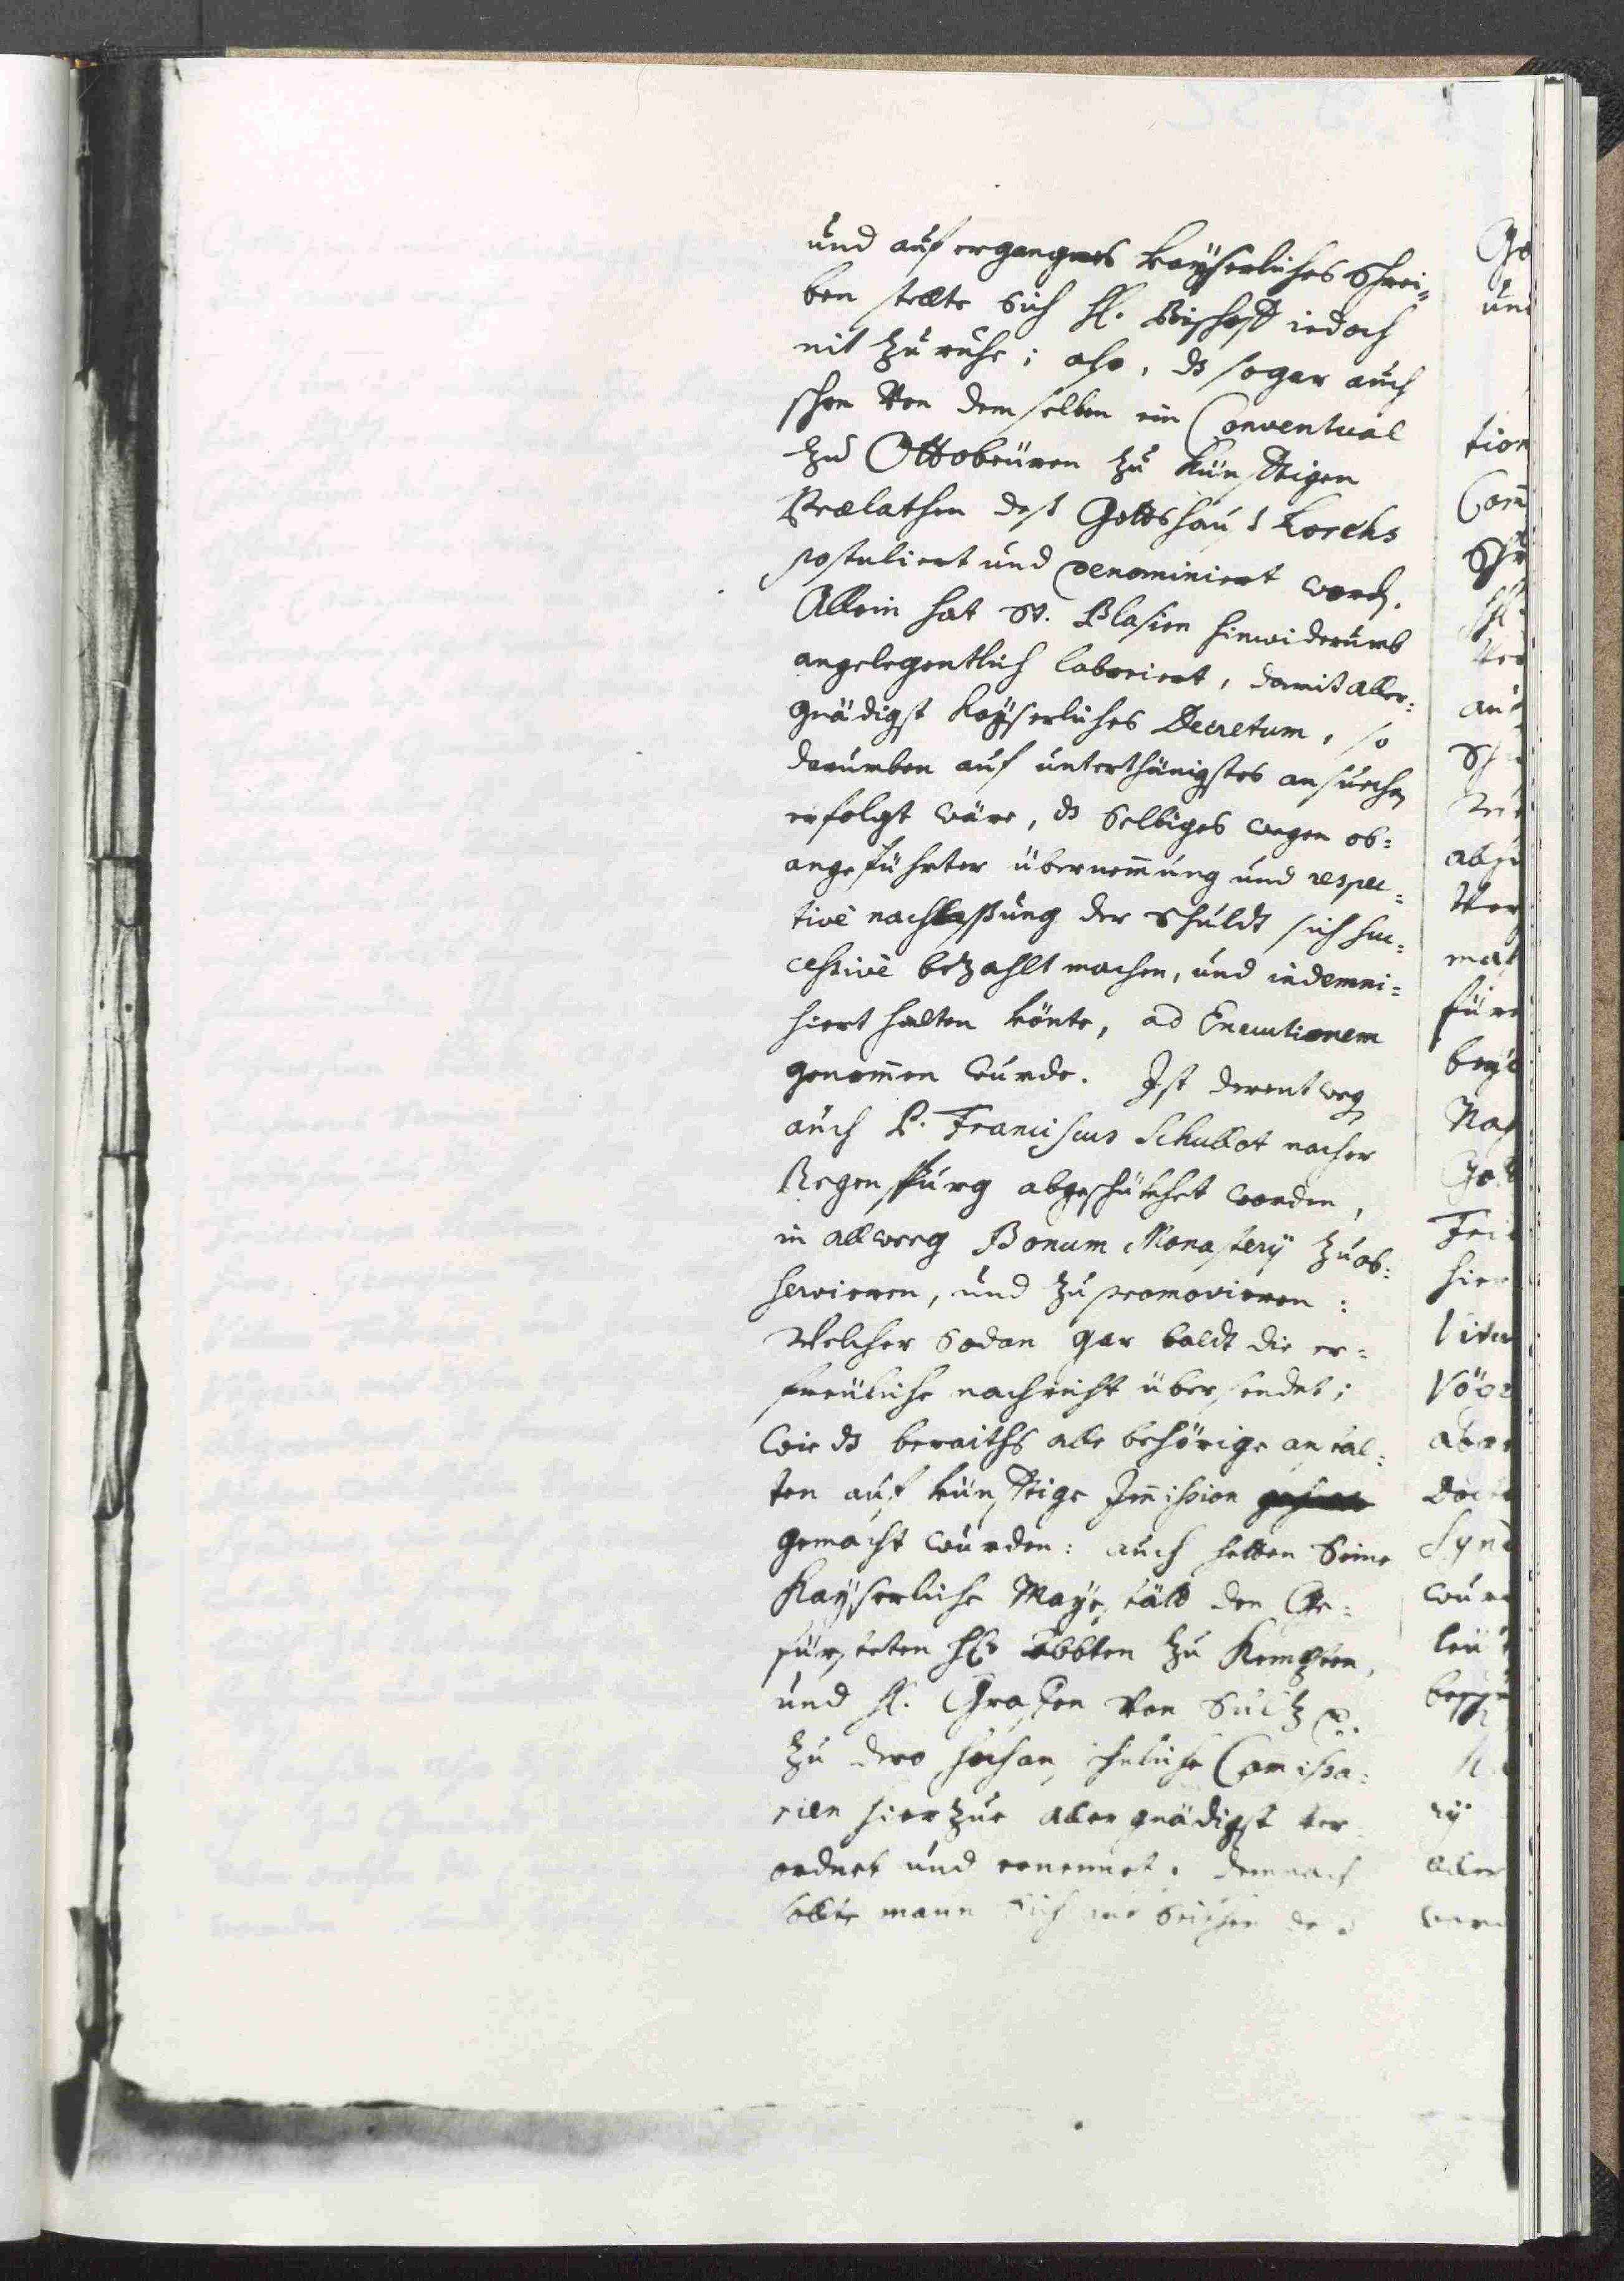 und auf ergangnes kayserliches Schrei=
ben stellte Sich H. Bischoff iedoch
nit zu ruhe; also, ds sogar auch
schon Von demselben ein Conventual
zu Ottobeüren zu künfftigen
Prælathen deß Gottshauß Lorchs
postuliert und denominiert word.
Allein hat St. Blasien hinwiderumb
angelegentlich laboriert, damit aller=
gnädigst kayserliches Decretum, so
darumben auf unterthänigstes ansuechen
erfolgt wäre, ds Selbiges wegen ob=
angeführter übernemung und respec=
tivè nachlassung der Schuldt sich suc=
cessivè bezahlt machen, und indemni=
siert halten könte, ad Executionem
genomen wurde. Ist derentweg
auch P. Franciscus Schullot nacher
Regenspurg abgeschükhet worden,
in allweeg Bonum Monasterÿ zu ob=
servieren, und zu promovieren:
Welcher Sodan gar baldt die er=
freüliche nachricht übersendet;
wie ds beraiths alle behörige anstal=
ten auf künfftige Imission
gemacht wurden: auch hetten Seine
Kayserliche Mayestätt den Ge=
fürsteten H. Abbten zu Kempten,
und H. Grafen Von Sultz
zu dero hochansehnliche Comissa=
rien hierzue allergnädigst ver=
ordnet und ernennet. demnach
sollte mann Sich
Go
und
tion
Com
auf
für
bey
Nach
Gott
hier
Vögt
aber
Doct
Synd
wur
leüt
rÿ
aller